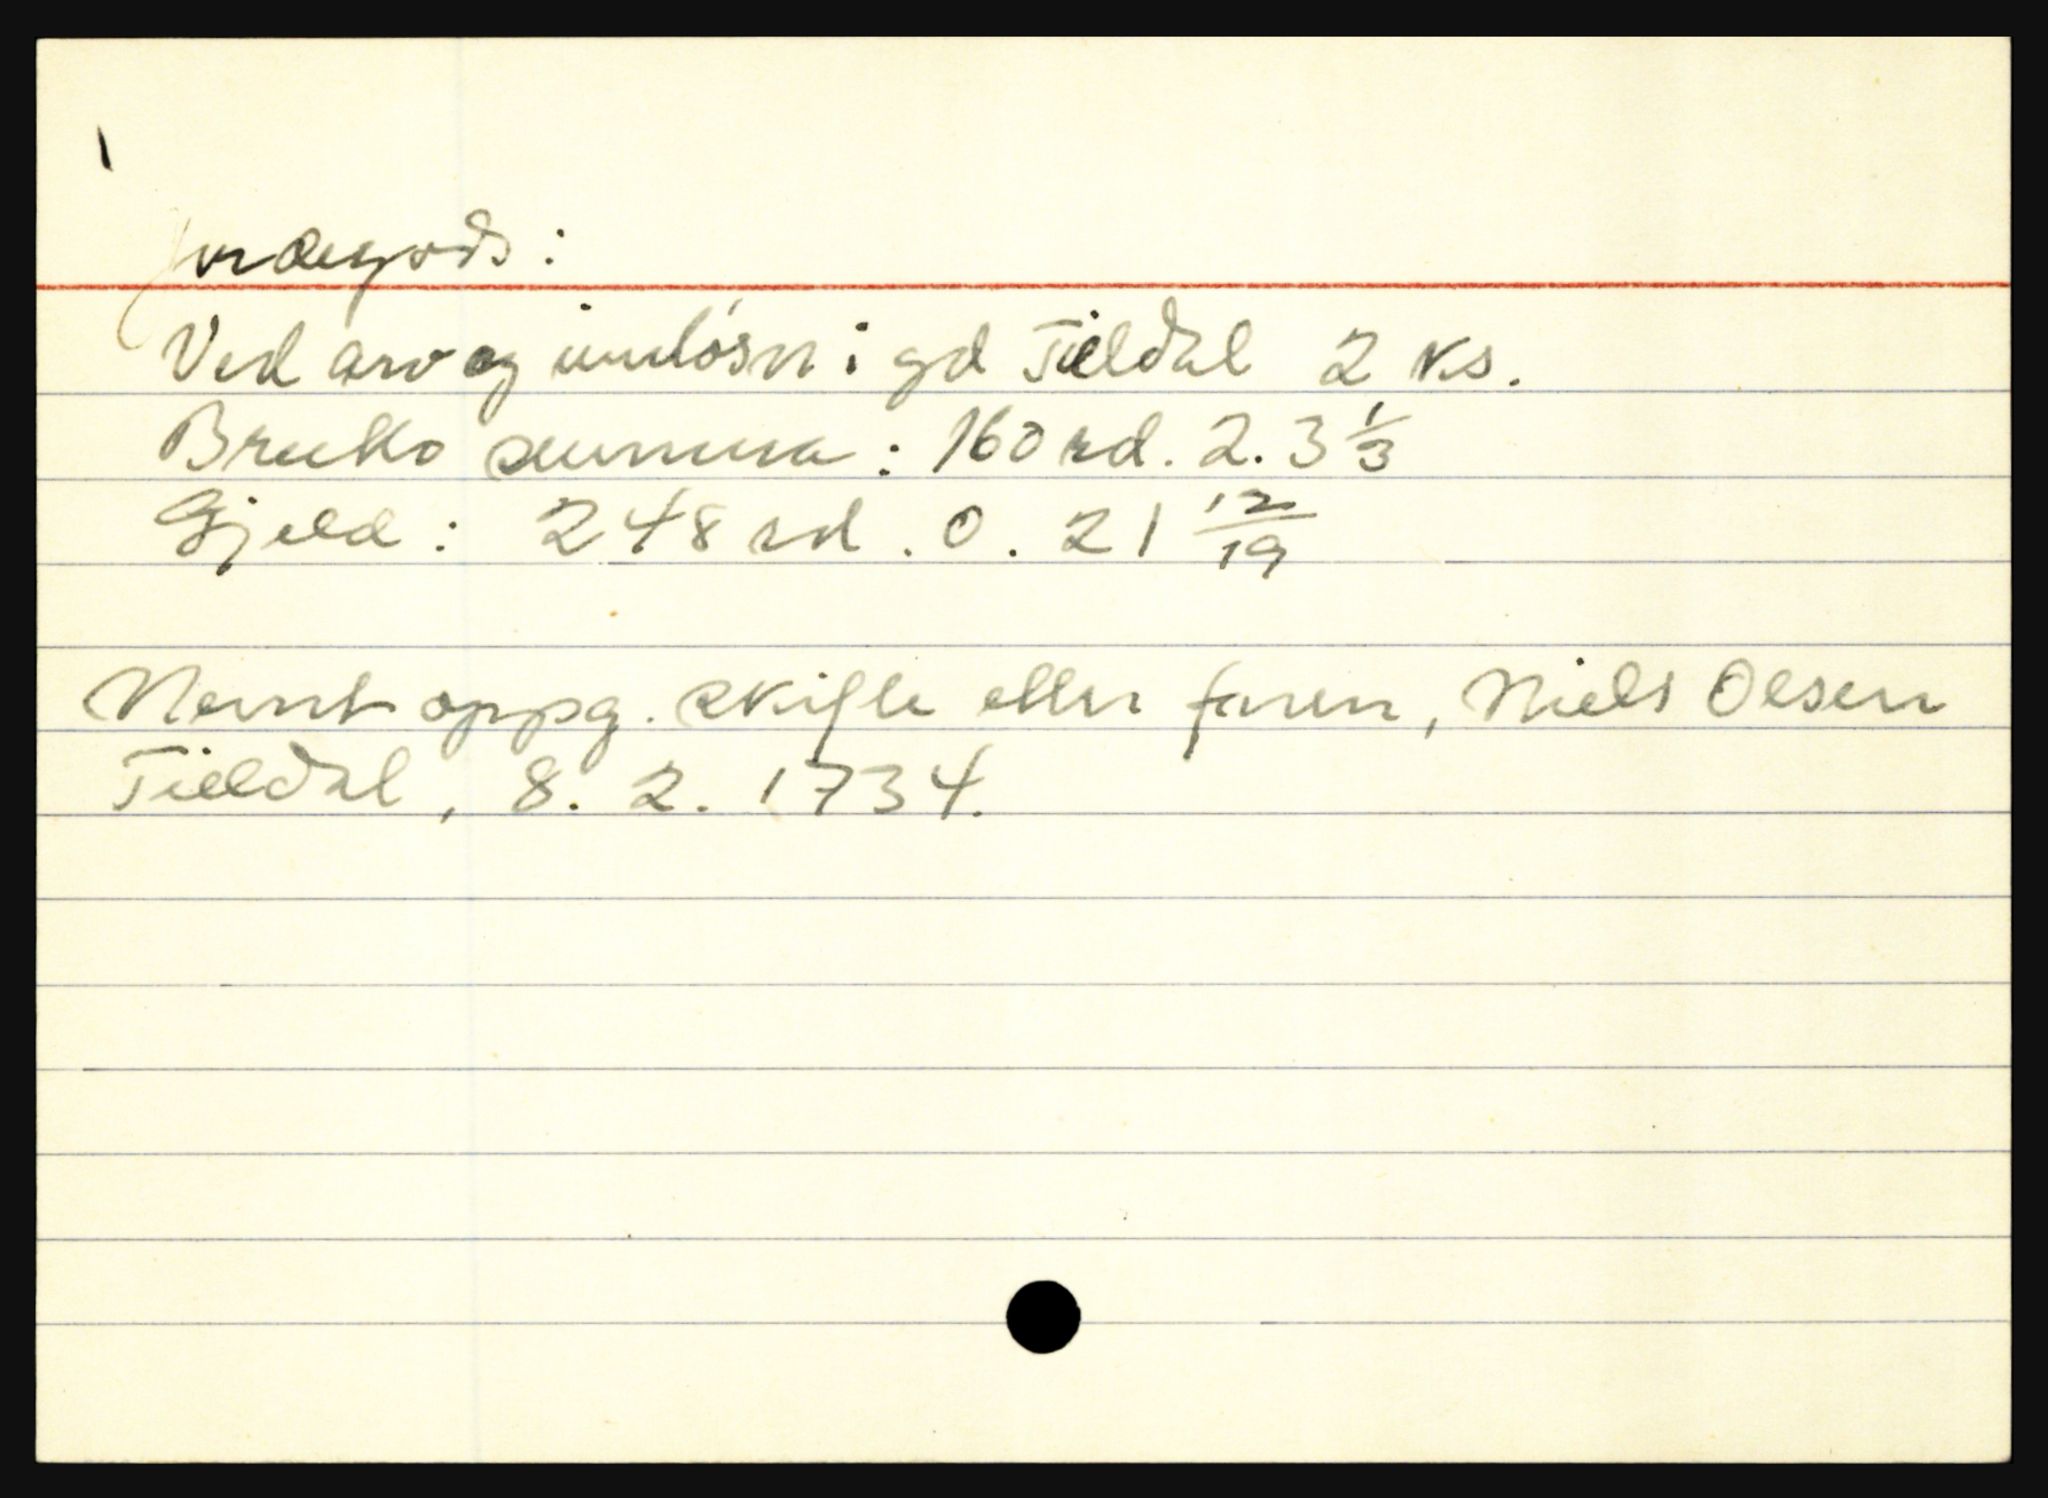 Jordegods:
Ved arv og innlösn i gd Tieldal 2 ks.
Brutto summa: 160 rd. 2. 3 1/3
Gjeld: 248 rd. 0. 21 12/19
Nevnt oppg. skifte etter faren, Niels Olsen
Tieldal, 8. 2. 1734.